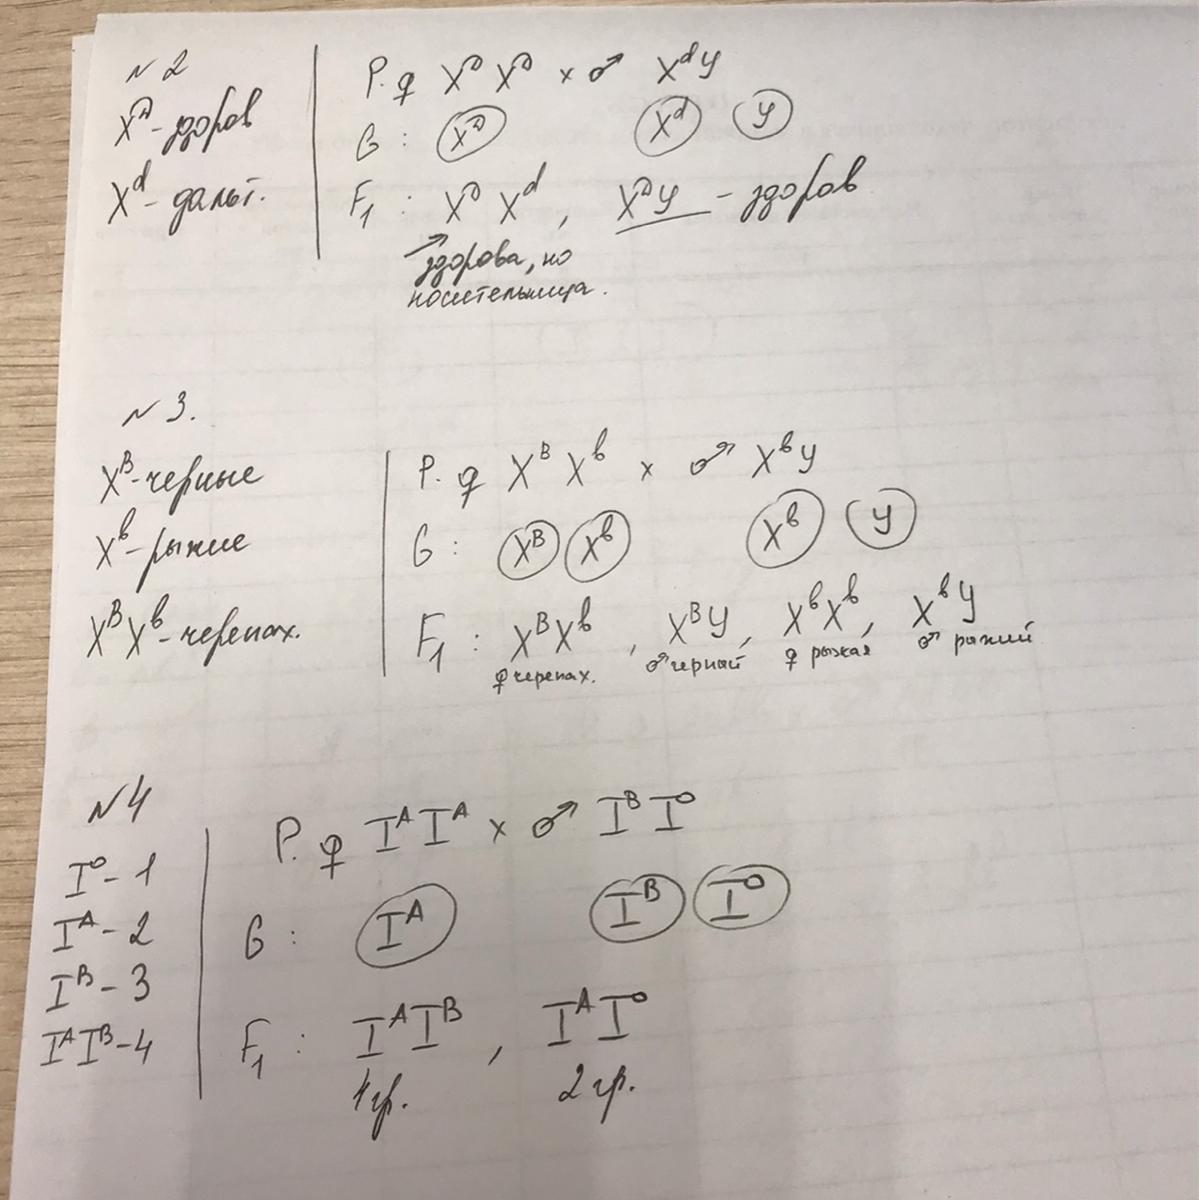 №2
X^D - здоров
X^d - дальт.
P. ♀ X^D X^D × ♂ X^d Y
G : X^D X^d Y
F₁ : X^D X^d, X^D Y - здоров
здорова, но
носительница.
№3.
X^B - черные
X^b - рыжие
X^B X^b - черепах.
P. ♀ X^B X^b × ♂ X^b Y
G : X^B X^b X^b Y
F₁ : X^B X^b, X^B Y, X^b X^b, X^b Y
♀ черепах. ♂ черный ♀ рыжая ♂ рыжий
№4
I^0 - 1
I^A - 2
I^B - 3
I^A I^B - 4
P. ♀ I^A I^A × ♂ I^B I^0
G : I^A I^B I^0
F₁ : I^A I^B, I^A I^0
4 гр. 2 гр.